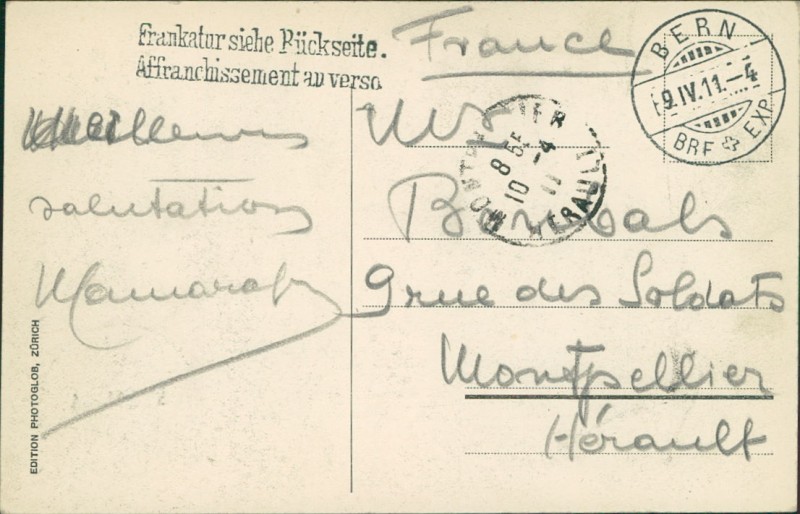 Frankatur siehe Rückseite.
Affranchissement au verso
France
BERN
9.IV.11.–4
BRF EXP.
MONTPELLIER
8 55
10 -4
11
HERAULT
Meilleures
salutations
Mr
9 rue des Soldats
Montpellier
Hérault
EDITION PHOTOGLOB, ZÜRICH